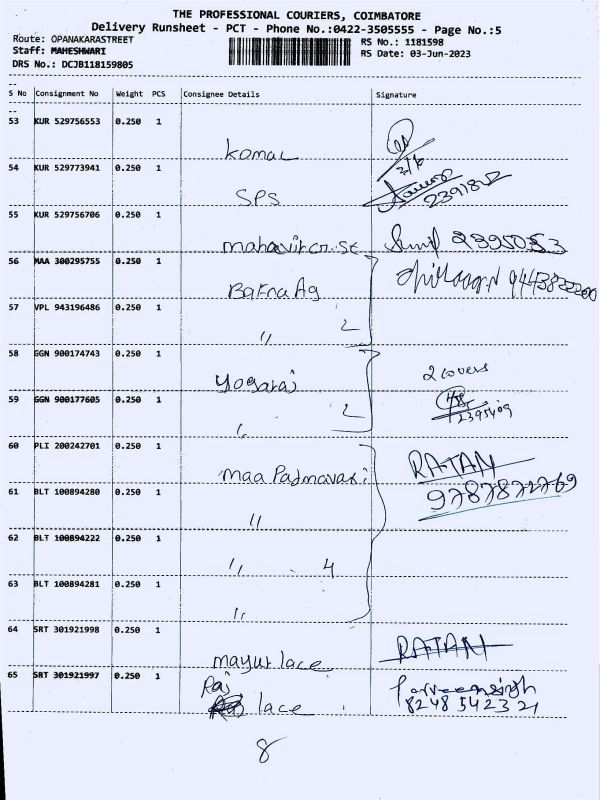 THE PROFESSIONAL COURIERS, COIMBATORE
Delivery Runsheet - PCT - Phone No.:0422-3505555 - Page No.:5
Route: OPANAKARASTREET
RS No.: 1181598
Staff: MAHESHWARI
RS Date: 03-Jun-2023
DRS No.: DCJB118159805
S No Consignment No Weight PCS Consignee Details Signature
53 KUR 529756553 0.250 1
Komal
3/6
54 KUR 529773941 0.250 1
SPS
55 KUR 529756706 0.250 1
2395053
56 MAA 300295755 0.250 1
Barna Ag
57 VPL 943196486 0.250 1
" 2
58 GGN 900174743 0.250 1
Yogaraj
2 covers
59 GGN 900177605 0.250 1
" 2
2395409
60 PLI 200242701 0.250 1
Maa Padmavati
RATAN
61 BLT 100894280 0.250 1
9787872769
"
62 BLT 100894222 0.250 1
" 4
63 BLT 100894281 0.250 1
"
64 SRT 301921998 0.250 1
mayur lace
RATAN
65 SRT 301921997 0.250 1
Raj
lace
Parveensingh
8248542321
8